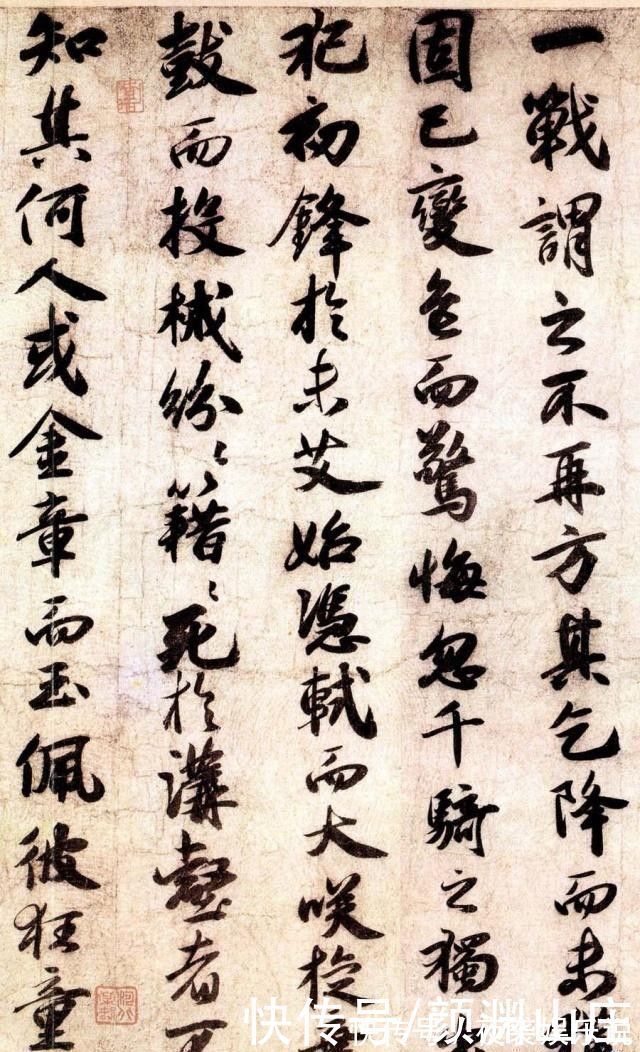 一戰謂之不再方其乞降而未
固已變色而驚悔忽千騎之獨
犯初鋒於未艾始憑軾而大咲旋
鼓而投械紛〻籍〻死於溝壑者不
知其何人或金章而玉佩彼狂童
快传号/颜渊山庄